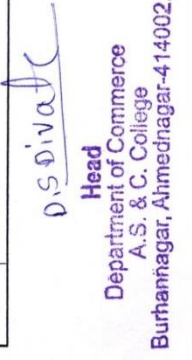 D.S.Divate
Head
Department of Commerce
A.S. & C. College
Burhannagar, Ahmednagar-414002